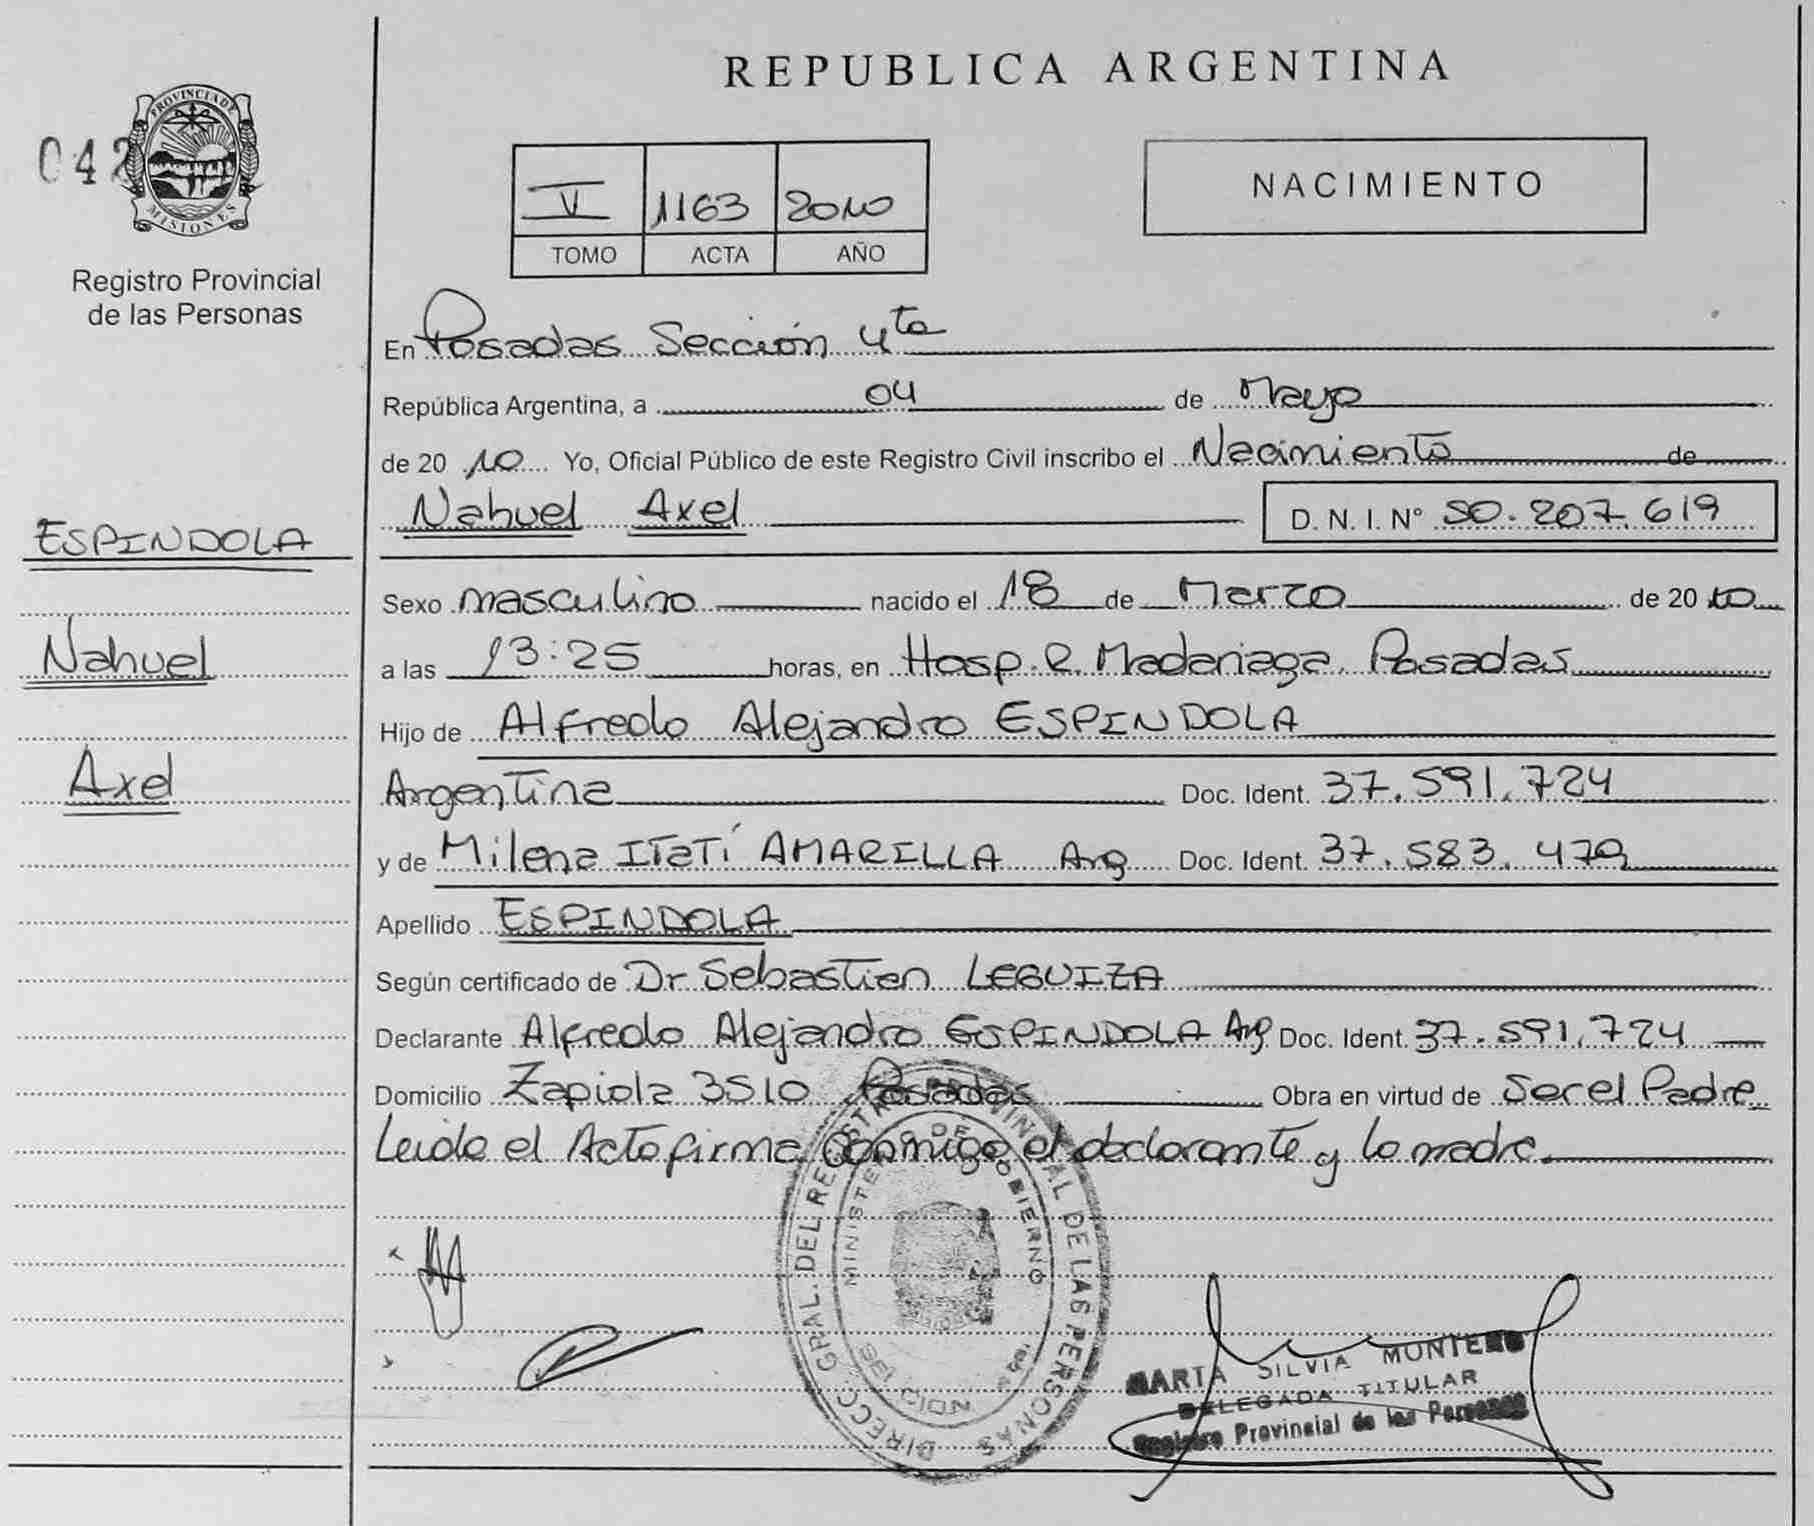 REPUBLICA ARGENTINA
PROVINCIA DE
MISIONES
042
Registro Provincial
de las Personas
V 1163 2010
TOMO ACTA AÑO
NACIMIENTO
En Posadas Sección 4ta
República Argentina, a 04 de Mayo
de 20 10 Yo, Oficial Público de este Registro Civil inscribo el Nacimiento de
Nahuel Axel D. N. I. N° 50.207.619
ESPINDOLA
Nahuel
Axel
Sexo masculino nacido el 18 de Marzo de 20 10
a las 13:25 horas, en Hosp. R. Madariaga Posadas
Hijo de Alfredo Alejandro ESPINDOLA
Argentina Doc. Ident. 37.591.724
y de Milena ITaTí AMARILLA Arg Doc. Ident. 37.583.479
Apellido ESPINDOLA
Según certificado de Dr Sebastien LEGUIZA
Declarante Alfredo Alejandro ESPINDOLA Arg Doc. Ident. 37.591.724
Domicilio Zapiola 3510 Posadas Obra en virtud de Ser el Padre
Leida el Acta firma conmigo el declarante y la madre.
DIRECC. GRAL. DEL REGISTRO PROVINCIAL DE LAS PERSONAS
MINISTERIO DE GOBIERNO
MARTA SILVIA MONTERO
DELEGADA TITULAR
Registro Provincial de las Personas